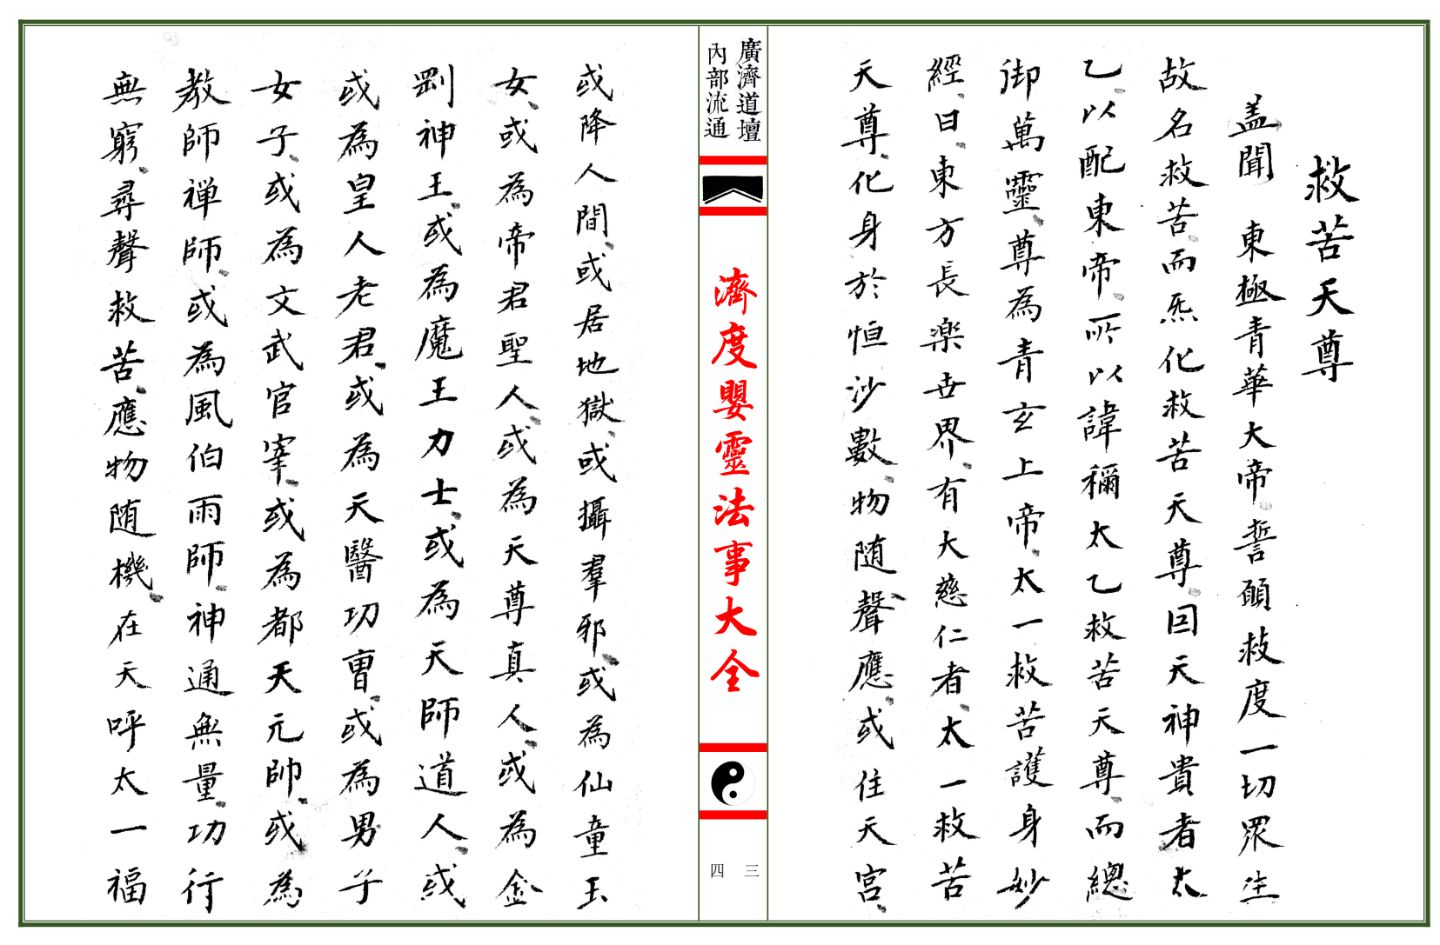 救苦天尊
盖聞　東極青華大帝誓願救度一切眾生
故名救苦、而炁化救苦天尊、因天神貴者太
乙、以配東帝、所以諱稱太乙救苦天尊、而總
御萬靈、尊為青玄上帝、太一救苦護身妙
經、曰、東方長楽世界、有大慈仁者、太一救苦
天尊、化身於恒沙數、物随聲應、或住天宫、
廣濟道壇
內部流通
濟度嬰靈法事大全
三
四
或降人間、或居地獄、或攝羣邪、或為仙童玉
女、或為帝君聖人、或為天尊真人、或為金
剛神王、或為魔王力士、或為天師道人、或
或為皇人老君、或為天醫功曹、或為男子
女子、或為文武官宰、或為都天元帥、或為
教師禅師、或為風伯雨師、神通無量、功行
無窮、尋聲救苦、應物随機、在天呼太一福